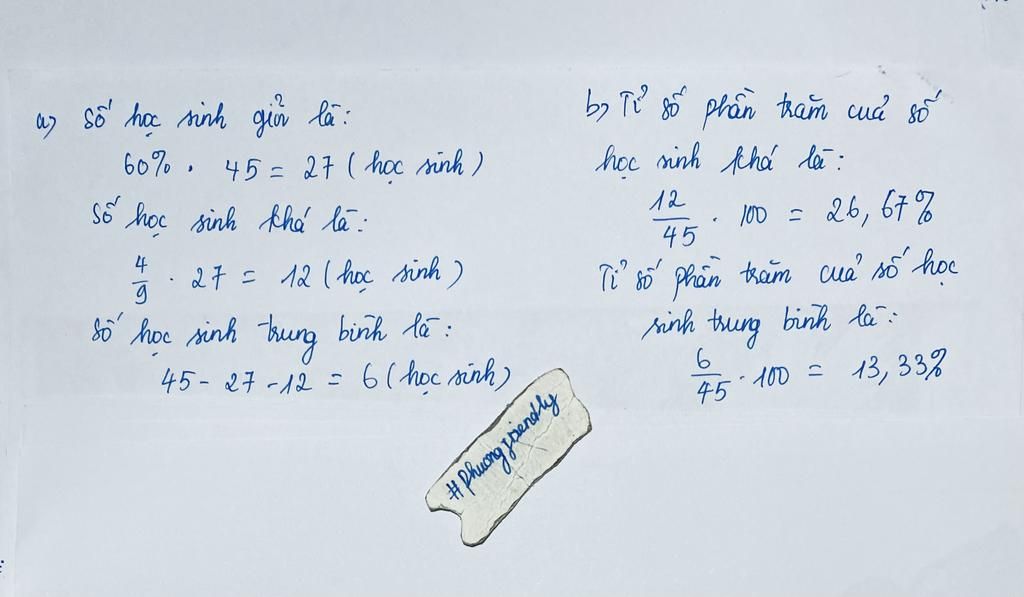 a) Số học sinh giỏi là:
60% . 45 = 27 (học sinh)
Số học sinh khá là:
4/9 . 27 = 12 (học sinh)
Số học sinh trung bình là:
45 - 27 - 12 = 6 (học sinh)
b) Tỉ số phần trăm cuả số
học sinh khá là:
12/45 . 100 = 26,67%
Tỉ số phần trăm cuả số học
sinh trung bình là:
6/45 . 100 = 13,33%
#phuongfriendly